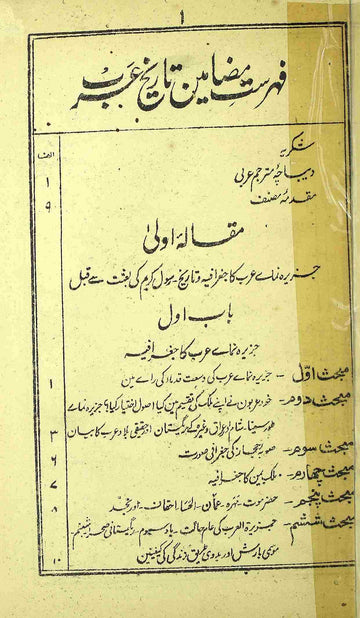 ۱
فہرست مضامین تاریخ عرب
شکریہ
دیباچۂ مترجم عربی ۱
مقدمۂ مصنف ۹
مقالۂ اولیٰ
جزیرہ نماے عرب کا جغرافیہ و تاریخ۔ رسول کریم کی بعثت سے قبل
باب اول
جزیرہ نماے عرب کا جغرافیہ
مبحث اوّل – جزیرہ نماے عرب کی وسعت قدما کی راے میں ۱
مبحث دوم – خود عربوں نے اپنے ملک کی تقسیم میں کیا اصول اختیار کیا؟ جزیرہ نماے
طور سینا، شام و عراق وغیرہ کے ریگستان اور حقیقی بلاد عرب کا بیان ۳
مبحث سوم – صوبہ حجاز کی جغرافی صورت ۶
مبحث چہارم – ملک یمن کا جغرافیہ ۷
مبحث پنجم – حضرموت۔ مہرہ۔ عمان۔ الحسا۔ احقاف۔ اور نجد ۸
مبحث ششم – جزیرۃ العرب کی عام حالت۔ باد سموم۔ ریگستانی صحرا۔ شبنم۔
موسمی بارش اور بدوی طریق زندگی کی کیفیتیں ۱۰